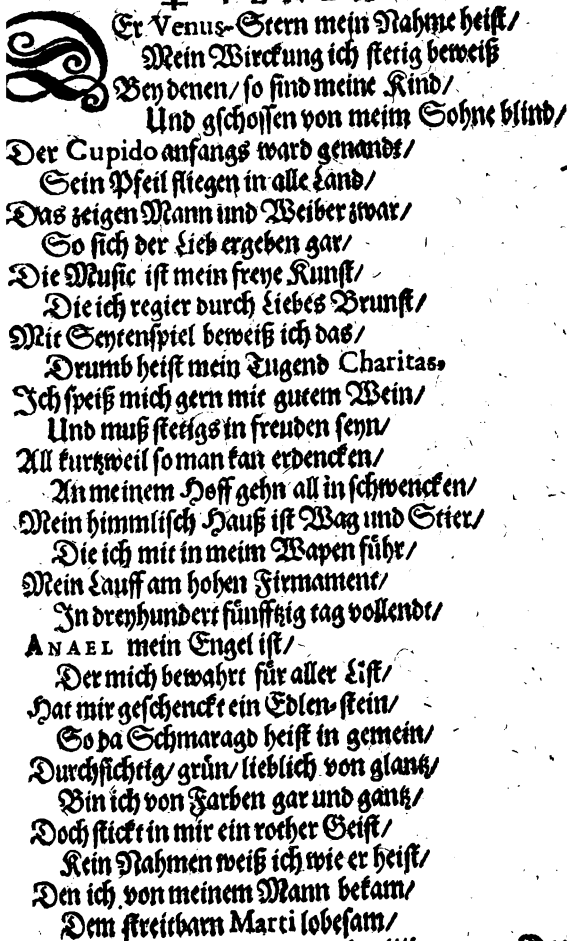 DEr Venus-Stern mein Nahme heist/
Mein Wirckung ich stetig beweiß
Bey denen/ so sind meine Kind/
Und gschossen von meim Sohne blind/
Der Cupido anfangs ward genandt/
Sein Pfeil fliegen in alle Land/
Das zeigen Mann und Weiber zwar/
So sich der Lieb ergeben gar/
Die Music ist mein freye Kunst/
Die ich regier durch Liebes Brunst/
Mit Seytenspiel beweiß ich das/
Drumb heist mein Tugend Charitas,
Ich speiß mich gern mit gutem Wein/
Und muß stetigs in freuden seyn/
All kurtzweil so man kan erdencken/
An meinem Hoff gehn all in schwencken/
Mein himmlisch Hauß ist Wag und Stier/
Die ich mit in meim Wapen führ/
Mein Lauff am hohen Firmament/
In dreyhundert fünfftzig tag vollendt/
ANAEL mein Engel ist/
Der mich bewahrt für aller List/
Hat mir geschenckt ein Edlen-stein/
So da Schmaragd heist in gemein/
Durchsichtig/ grün/ lieblich von glantz/
Bin ich von Farben gar und gantz/
Doch stickt in mir ein rother Geist/
Kein Nahmen weiß ich wie er heist/
Den ich von meinem Mann bekam/
Dem streitbarn Marti lobesam/